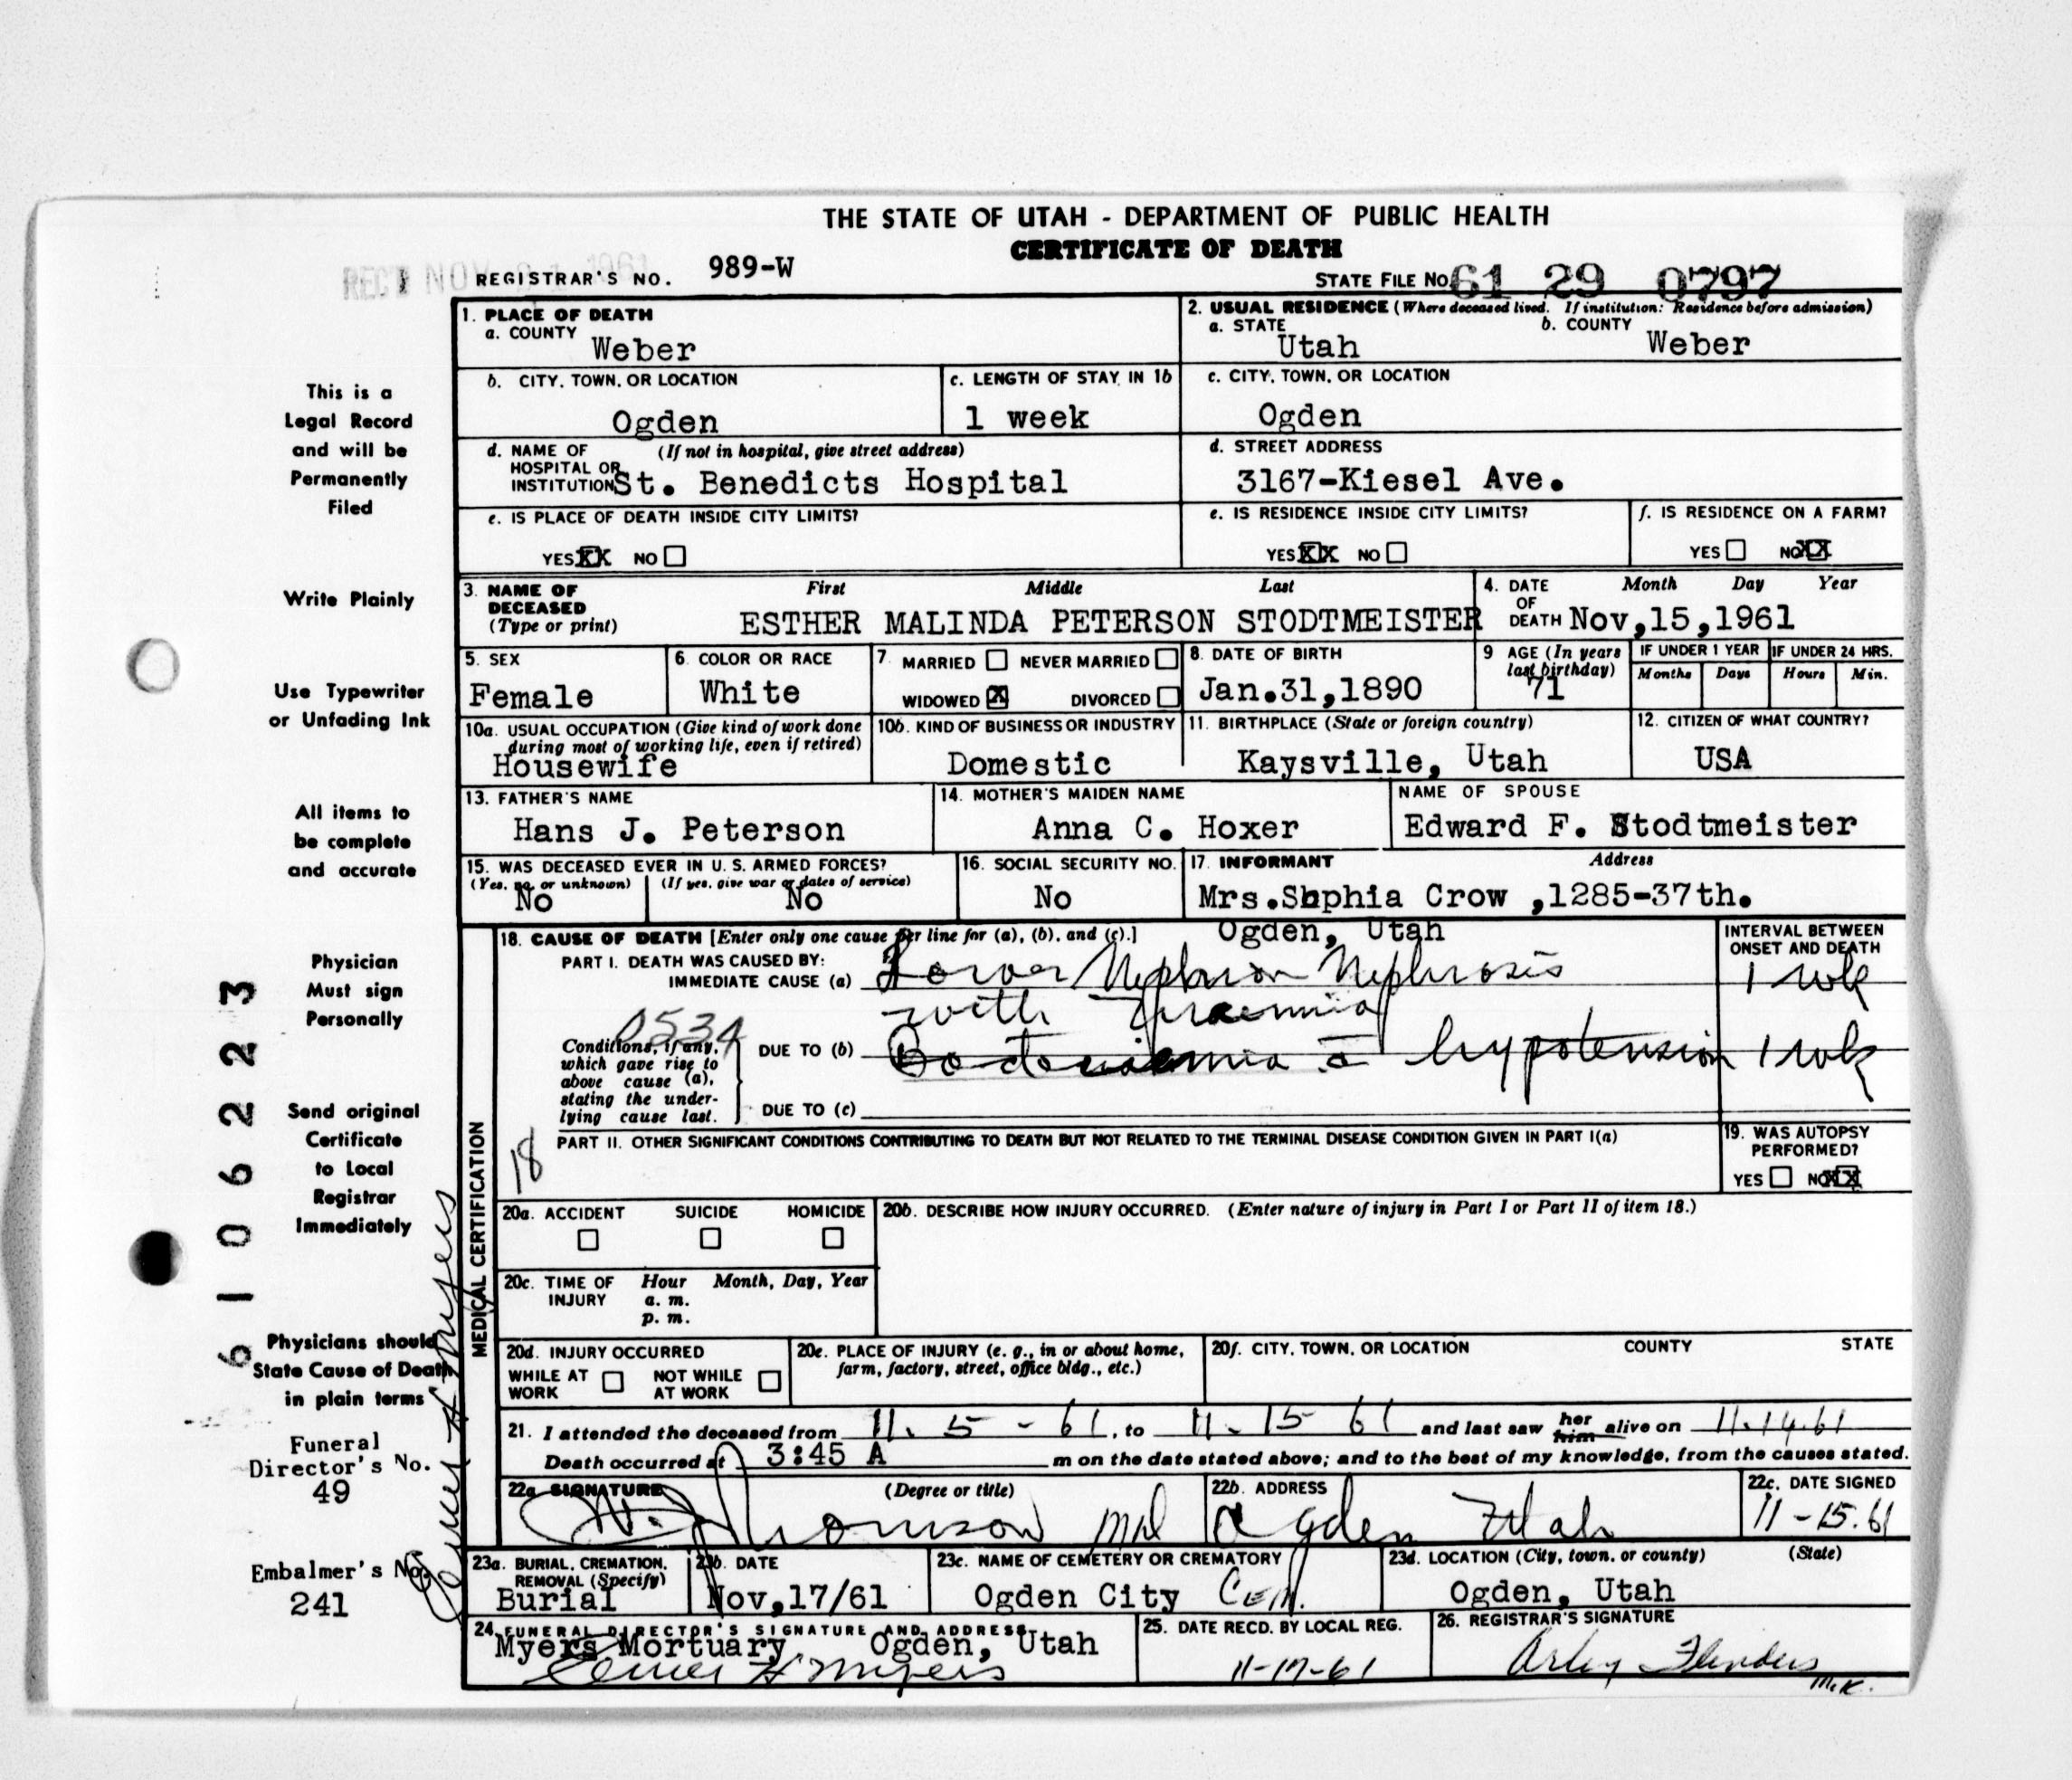 THE STATE OF UTAH - DEPARTMENT OF PUBLIC HEALTH
CERTIFICATE OF DEATH
REC'D NOV 1961
REGISTRAR'S NO. 989-W
STATE FILE NO. 61 29 0797
1. PLACE OF DEATH
a. COUNTY
Weber
2. USUAL RESIDENCE (Where deceased lived. If institution: Residence before admission)
a. STATE b. COUNTY
Utah Weber
b. CITY, TOWN, OR LOCATION
Ogden
c. LENGTH OF STAY IN 1b
1 week
c. CITY, TOWN, OR LOCATION
Ogden
d. NAME OF (If not in hospital, give street address)
HOSPITAL OR
INSTITUTION St. Benedicts Hospital
d. STREET ADDRESS
3167-Kiesel Ave.
e. IS PLACE OF DEATH INSIDE CITY LIMITS?
YES XX NO
e. IS RESIDENCE INSIDE CITY LIMITS?
YES XX NO
f. IS RESIDENCE ON A FARM?
YES NO XX
3. NAME OF
DECEASED
(Type or print)
First Middle Last
ESTHER MALINDA PETERSON STODTMEISTER
4. DATE
OF
DEATH
Month Day Year
Nov,15,1961
5. SEX
Female
6. COLOR OR RACE
White
7. MARRIED NEVER MARRIED
WIDOWED X DIVORCED
8. DATE OF BIRTH
Jan.31,1890
9 AGE (In years
last birthday)
71
IF UNDER 1 YEAR
Months Days
IF UNDER 24 HRS.
Hours Min.
10a. USUAL OCCUPATION (Give kind of work done
during most of working life, even if retired)
Housewife
10b. KIND OF BUSINESS OR INDUSTRY
Domestic
11. BIRTHPLACE (State or foreign country)
Kaysville, Utah
12. CITIZEN OF WHAT COUNTRY?
USA
13. FATHER'S NAME
Hans J. Peterson
14. MOTHER'S MAIDEN NAME
Anna C. Hoxer
NAME OF SPOUSE
Edward F. Stodtmeister
15. WAS DECEASED EVER IN U. S. ARMED FORCES?
(Yes, no, or unknown) (If yes, give war or dates of service)
No No
16. SOCIAL SECURITY NO.
No
17. INFORMANT Address
Mrs.Sophia Crow ,1285-37th.
Ogden, Utah
MEDICAL CERTIFICATION
18. CAUSE OF DEATH [Enter only one cause per line for (a), (b), and (c).]
PART I. DEATH WAS CAUSED BY:
IMMEDIATE CAUSE (a) Lower Nephron Nephrosis
with Uraemia
INTERVAL BETWEEN
ONSET AND DEATH
1 wk
Conditions, if any,
which gave rise to
above cause (a),
stating the under-
lying cause last.
DUE TO (b) Bacteriaemia c̄ hypotension 1 wk
DUE TO (c)
18
PART II. OTHER SIGNIFICANT CONDITIONS CONTRIBUTING TO DEATH BUT NOT RELATED TO THE TERMINAL DISEASE CONDITION GIVEN IN PART I(a)
19. WAS AUTOPSY
PERFORMED?
YES NO XX
20a. ACCIDENT SUICIDE HOMICIDE
20b. DESCRIBE HOW INJURY OCCURRED. (Enter nature of injury in Part I or Part II of item 18.)
20c. TIME OF
INJURY
Hour Month, Day, Year
a. m.
p. m.
20d. INJURY OCCURRED
WHILE AT
WORK
NOT WHILE
AT WORK
20e. PLACE OF INJURY (e. g., in or about home,
farm, factory, street, office bldg., etc.)
20f. CITY, TOWN, OR LOCATION COUNTY STATE
21. I attended the deceased from 11. 5 - 61, to 11. 15 61 and last saw her him alive on 11.14.61
Death occurred at 3:45 A m on the date stated above; and to the best of my knowledge, from the causes stated.
22a SIGNATURE (Degree or title)
Thomson MD
22b. ADDRESS
Ogden Utah
22c. DATE SIGNED
11-15.61
23a. BURIAL, CREMATION,
REMOVAL (Specify)
Burial
23b. DATE
Nov,17/61
23c. NAME OF CEMETERY OR CREMATORY
Ogden City Cem.
23d. LOCATION (City, town, or county) (State)
Ogden, Utah
24. FUNERAL DIRECTOR'S SIGNATURE AND ADDRESS
Myers Mortuary Ogden, Utah
Elmer H Myers
25. DATE RECD. BY LOCAL REG.
11-17-61
26. REGISTRAR'S SIGNATURE
Arley Flinders
M.K.
This is a
Legal Record
and will be
Permanently
Filed
Write Plainly
Use Typewriter
or Unfading Ink
All items to
be complete
and accurate
Physician
Must sign
Personally
Send original
Certificate
to Local
Registrar
Immediately
Physicians should
State Cause of Death
in plain terms
Funeral
Director's No.
49
Embalmer's No.
241
Elmer H Myers
6106223